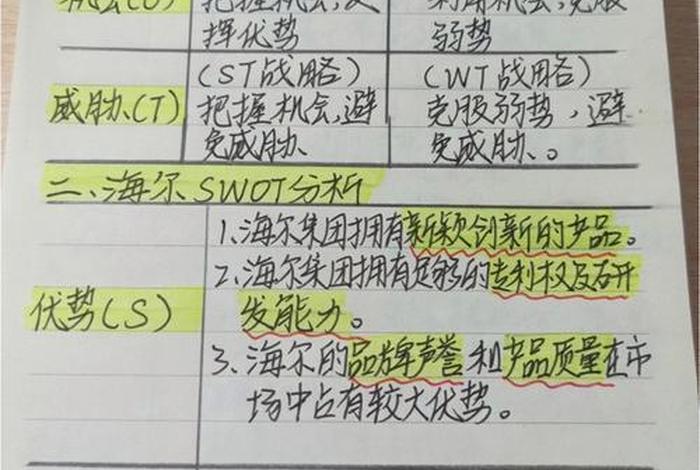 机会(O) 把握机会,发 利用机会,克服
挥优势 弱势
(ST战略) (WT战略)
威胁(T) 把握机会,避 克服弱势,避
免威胁、 免威胁。
二、海尔SWOT分析
1、海尔集团拥有新颖创新的产品。
2、海尔集团拥有足够的专利权及研
优势(S) 发能力。
3、海尔的品牌声誉和产品质量在市
场中占有较大优势。